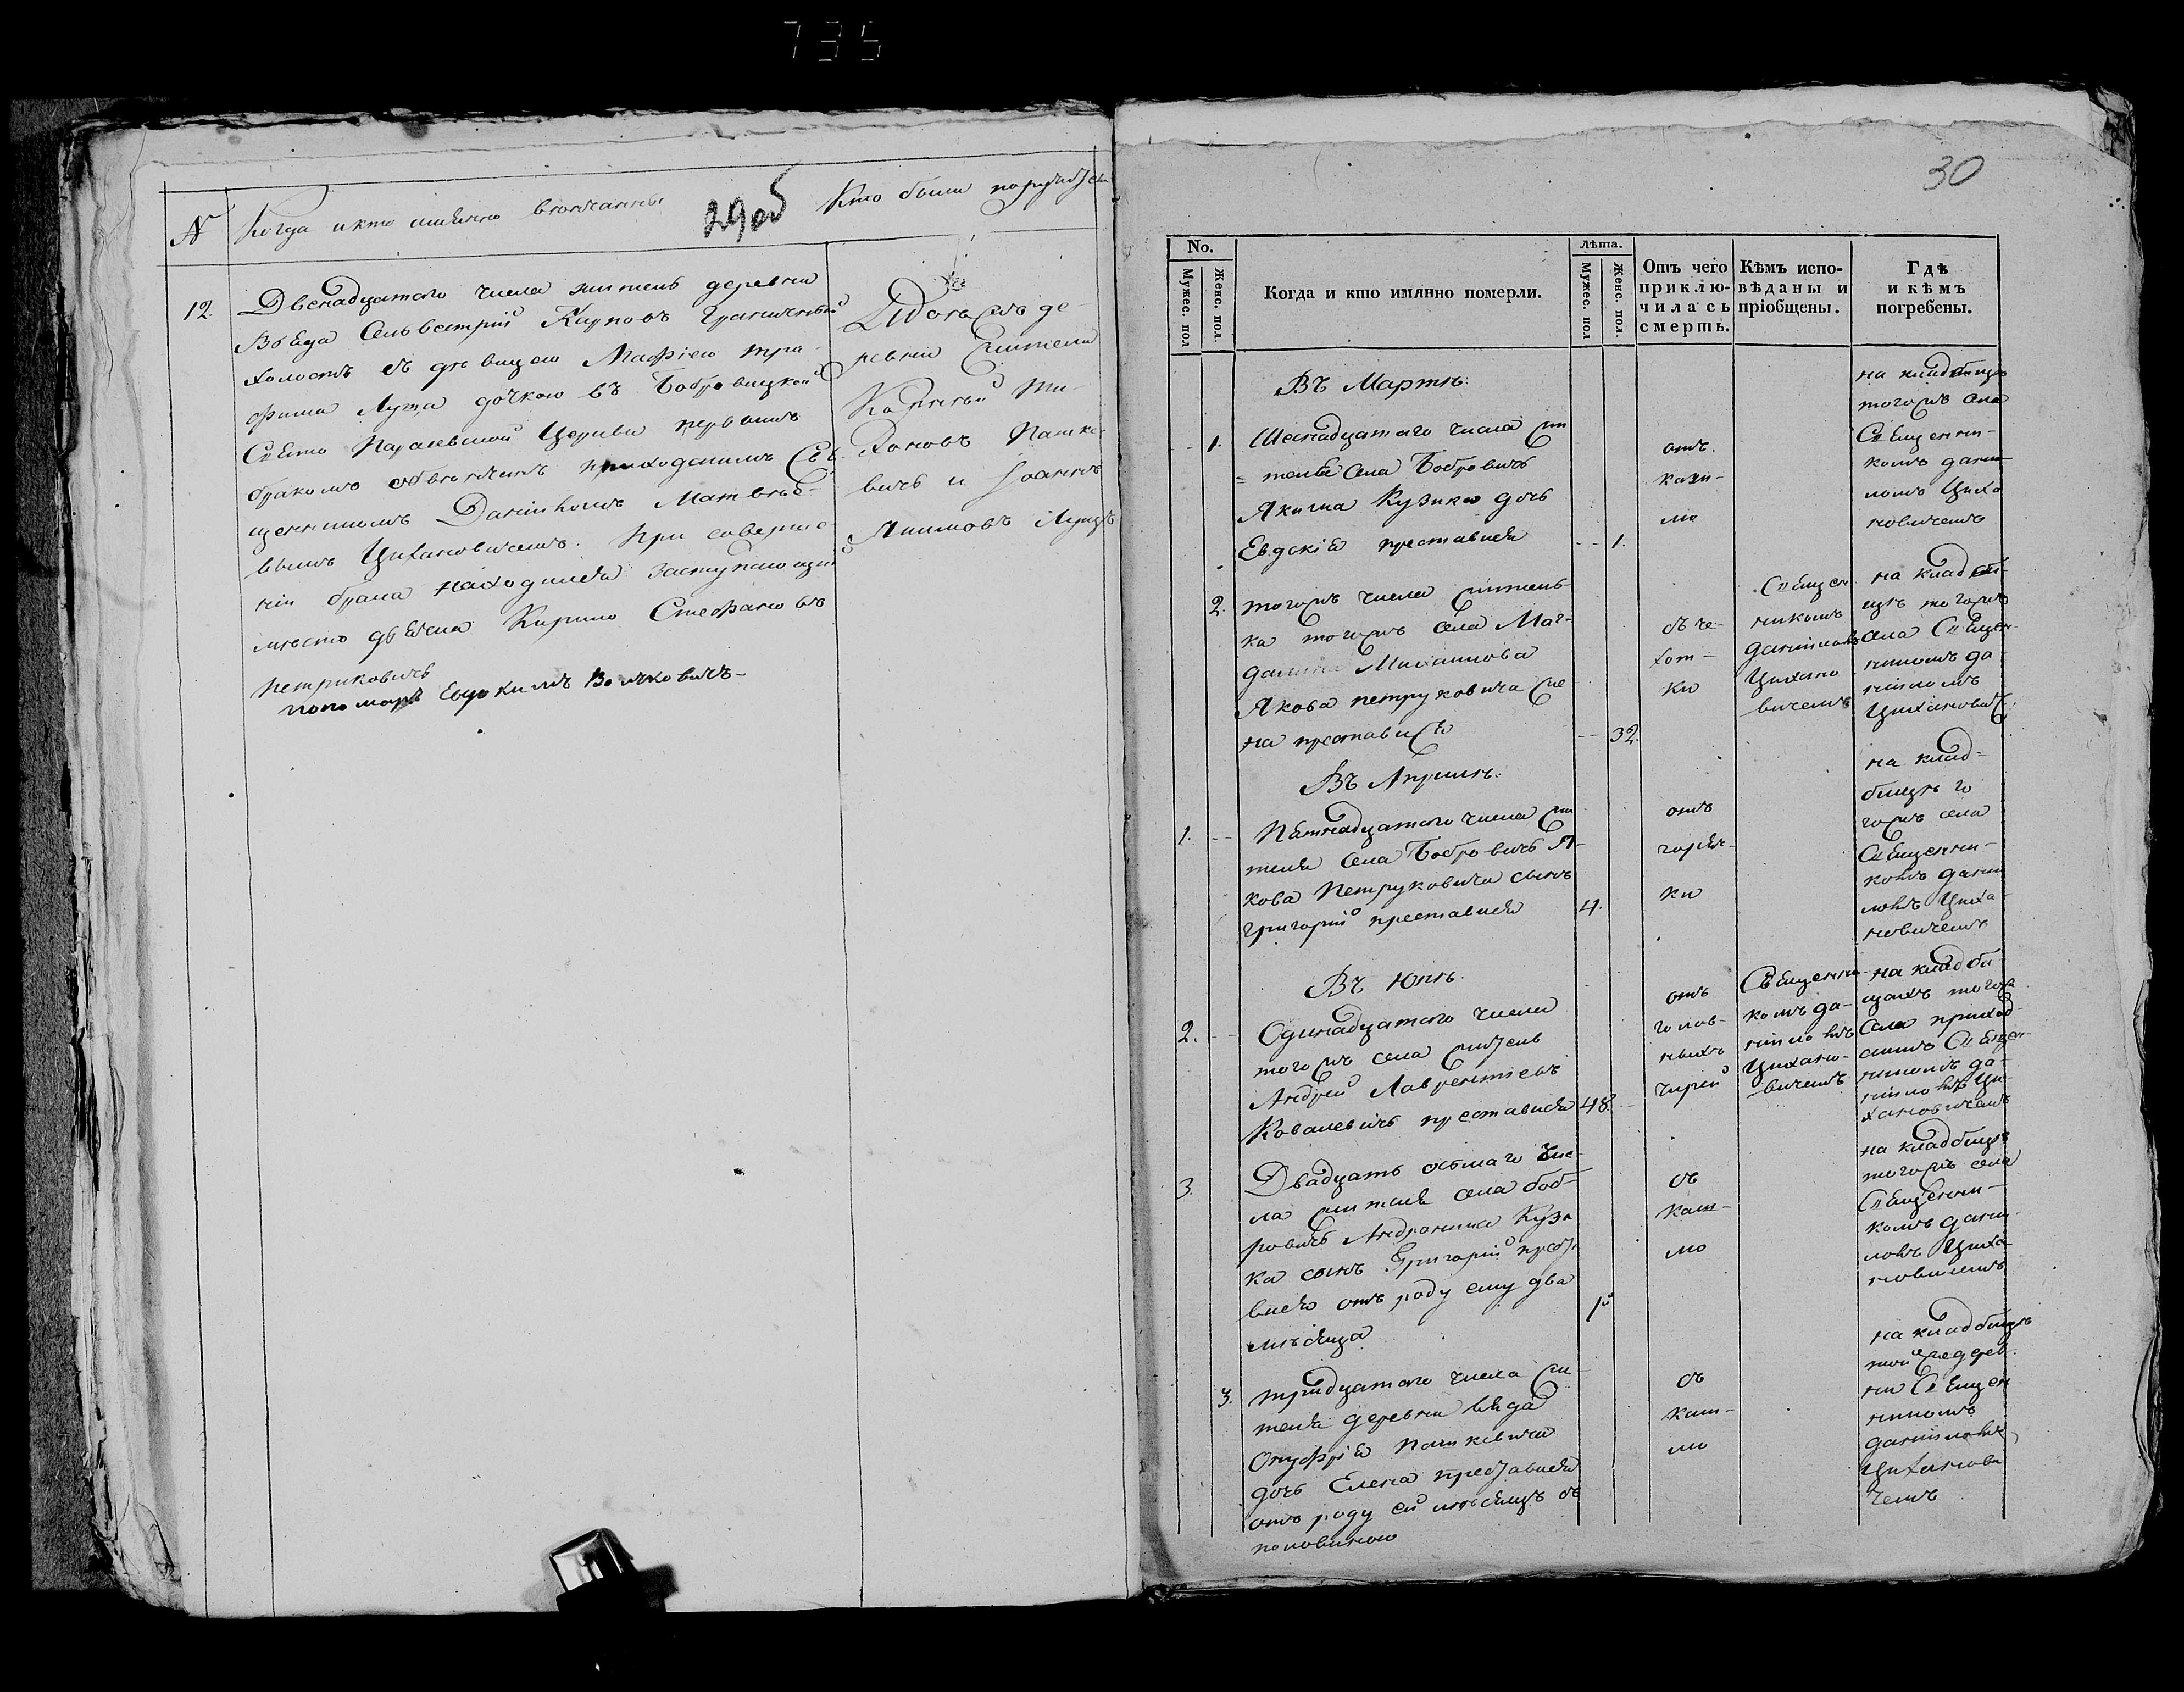 735
N Когда и кто имянно венчанны
29об
Кто были поручители
12.
Двенадцатого числа житель деревни
Вѣда Сельвестрий Карповъ Граничный
холостъ съ девицею Марфiею Тро-
фима Луща дочкою въ Бобровицкой
Свято Параевской Церкви первымъ
бракомъ обвенчатъ приходскимъ Свя-
щенникомъ Данiиломъ Матвѣе-
вымъ Цихановичемъ. При соверше
нiи брака находился заступающий
мѣсто дьячка Кирило Стефановъ
Петриковичъ
пономаръ Евдокимъ Волчковичъ-
тогожъ де-
ревни жители
ховъ Пашке-
вичъ и Iоаннъ
Якимовъ Лущъ
30
No.
Мужес. пол
Женс. пол.
Когда и кто имянно померли.
лѣта.
Мужес. пол
Женс. пол.
Отъ чего
приклю-
чилась
смерть.
Кѣмъ испо-
вѣданы и
прiобщены.
Гдѣ
и кѣмъ
погребены.
Въ Мартѣ.
1. Шеснадцатого числа жи
теля села Бобровичъ
Якима Кузика дочь
Евдокiя преставися -- 1.
отъ
кази-
мо
на кладбищѣ
тогожъ села
Священни-
комъ дани-
ломъ Циха
новичемъ
2. тогожъ числа житель
ка тогожъ села Маг-
далина Михаилова
Якова петруковича же-
на преставися -- 32.
съ че-
хот-
ки
Священ
никомъ
данiиломъ
Цихано
вичемъ
на кладби-
щѣ тогожъ
села Священ-
никомъ да
нiиломъ
Цихановиче
Въ Априлѣ.
1. -- Пятнадцатого числа жи
теля села Бобровичъ Я-
кова Петруковича сынъ
Григорiй преставися 4.
отъ
горяч-
ки
на клад-
бищѣ то
гожъ села
Священни-
комъ дани
ломъ Циха-
новичемъ
Въ Юнѣ.
2. -- Одинадцатого числа
тогожъ села житель
Андрей Лаврентiевъ
Ковалевичъ преставися 48.
отъ
голов-
ныхъ
чирей
Священни
комъ да-
нiиломъ
Цихано-
вичемъ
на кладби-
щахъ тогож
села приход-
скимъ Священ-
никомъ да-
нiиломъ Ци-
хановичемъ
3. Двадцать осьмаго чис-
ла жителя села боб-
ровичъ Андроника Кузи
ка сынъ Григорiй преста
вися отъ роду ему два
мѣсяца
съ
каш-
лю
на кладбищѣ
тогожъ села
Священни-
комъ дани-
ломъ Циха
новичемъ
3. тридцатого числа жи-
теля деревни вяда
Онуфрiя Пашкевича
дочь Елена преставися
отъ роду ей мѣсяцъ съ
половиною
съ
каш-
лю
на кладбищѣ
тойже дерев
ни Священ
никомъ
данiиломъ
Цыханови
чемъ